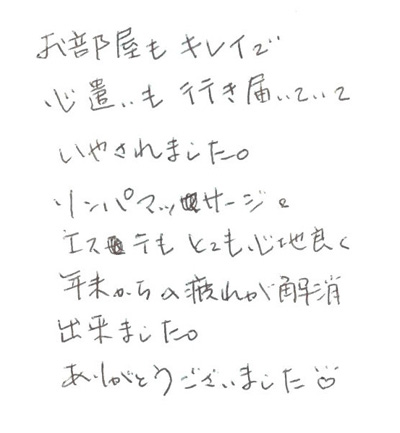 お部屋もキレイで
心遣いも行き届いていて
いやされました。
リンパマッサージと
エステもとても心地良く
年末からの疲れが解消
出来ました。
ありがとうございました